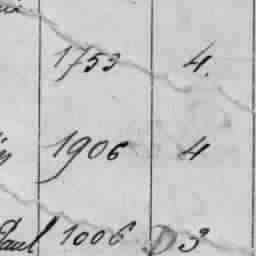 1753 4.
1906 4
Paul 1006 D 3